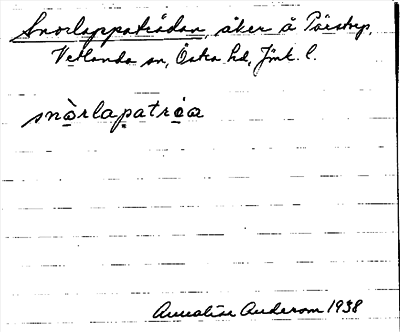 Snorlappaträdan, åker å Pärstorp,
Vetlanda sn, Östra hd, Jönk. l.
snòrlapatrǿa
Annalise Anderson 1938